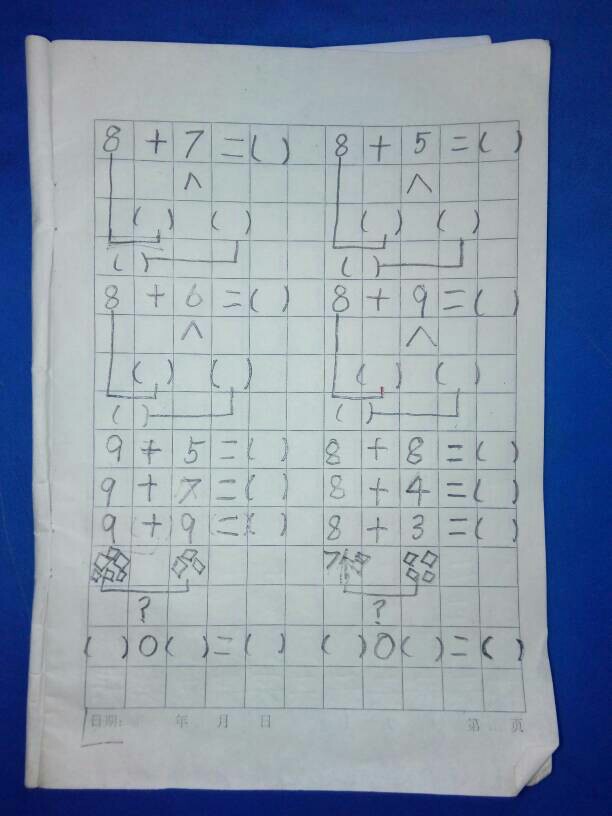 8 + 7 = ( ) 8 + 5 = ( )
( ) ( ) ( ) ( )
( ) ( )
8 + 6 = ( ) 8 + 9 = ( )
( ) ( ) ( ) ( )
( ) ( )
9 + 5 = ( ) 8 + 8 = ( )
9 + 7 = ( ) 8 + 4 = ( )
9 + 9 = ( ) 8 + 3 = ( )
? ?
( ) ○ ( ) = ( ) ( ) ○ ( ) = ( )
日期: 年 月 日 第 页